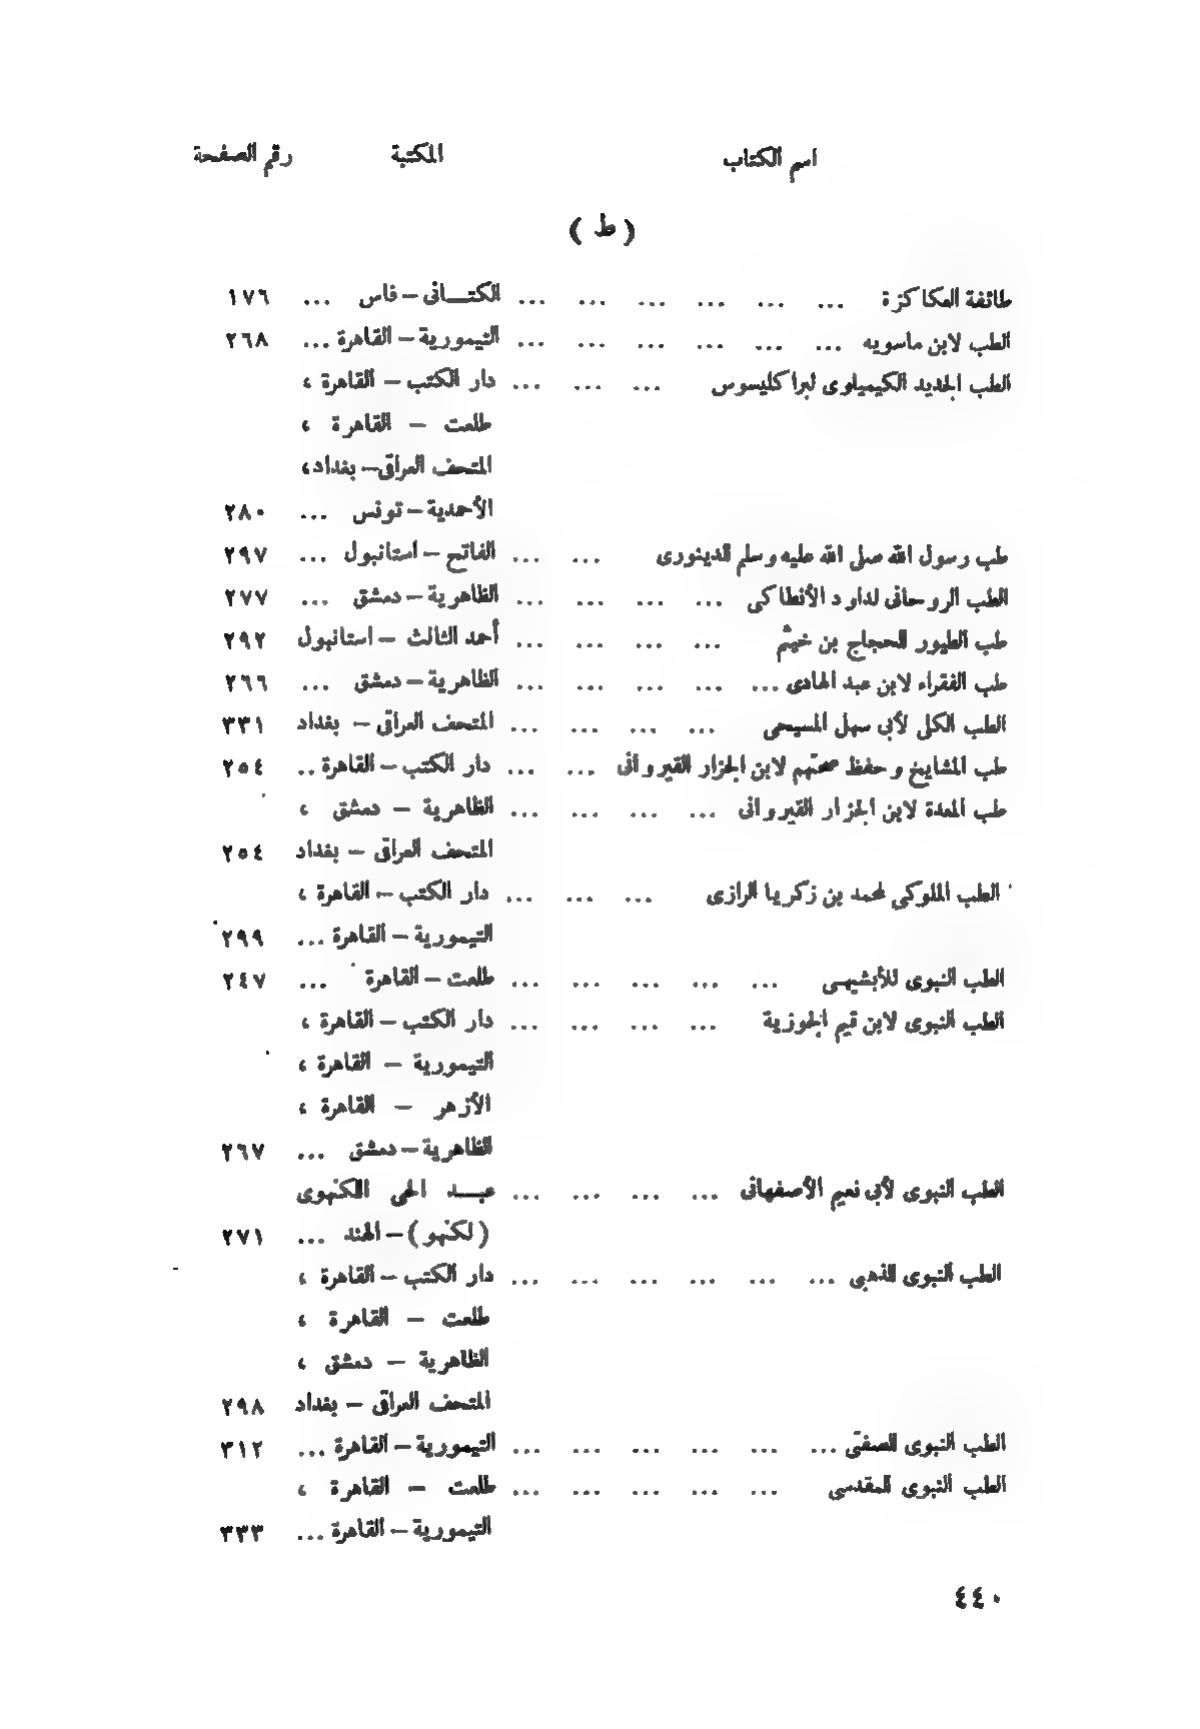 اسم الكتاب المكتبة رقم الصفحة
( ط )
طائفة العكاكزة ... ... ... ... ... ... الكتـــانى – فاس ... ١٧٦
الطب لابن ماسويه ... ... ... ... ... ... التيمورية – القاهرة ... ٢٦٨
الطب الجديد الكيمياوى لبراكليسوس ... ... ... دار الكتب – القاهرة ،
طلعت – القاهرة ،
المتحف العراقى – بغداد ،
الأحمدية – تونس ... ٢٨٠
طب رسول الله صلى الله عليه وسلم للدينورى ... ... الفاتح – استانبول ... ٢٩٧
الطب الروحانى لداود الأنطاكى ... ... ... ... الظاهرية – دمشق ... ٢٧٧
طب الطيور للحجاج بن خيثم ... ... ... ... أحمد الثالث – استانبول ٢٩٢
طب الفقراء لابن عبد الهادى ... ... ... ... ... الظاهرية – دمشق ... ٢٦٦
الطب الكلى لأبى سهل المسيحى ... ... ... ... المتحف العراقى – بغداد ٣٣١
طب المشايخ وحفظ صحتهم لابن الجزار القيروانى ... ... دار الكتب – القاهرة .. ٢٥٤
طب المعدة لابن الجزار القيروانى ... ... ... ... الظاهرية – دمشق ،
المتحف العراقى – بغداد ٢٥٤
الطب الملوكى لمحمد بن زكريا الرازى ... ... ... دار الكتب – القاهرة ،
التيمورية – القاهرة ... ٢٩٩
الطب النبوى للأبشيهى ... ... ... ... ... طلعت – القاهرة ... ٢٤٧
الطب النبوى لابن قيم الجوزية ... ... ... ... دار الكتب – القاهرة ،
التيمورية – القاهرة ،
الأزهر – القاهرة ،
الظاهرية – دمشق ... ٢٦٧
الطب النبوى لأبى نعيم الأصفهانى ... ... ... ... عبـــد الحى اللكنهوى
( لكنهو ) – الهند ... ٢٧١
الطب النبوى للذهبى ... ... ... ... ... ... دار الكتب – القاهرة ،
طلعت – القاهرة ،
الظاهرية – دمشق ،
المتحف العراقى – بغداد ٢٩٨
الطب النبوى للصفتى ... ... ... ... ... ... التيمورية – القاهرة ... ٣١٢
الطب النبوى للمقدسى ... ... ... ... ... طلعت – القاهرة ،
التيمورية – القاهرة ... ٣٣٣
٤٤٠